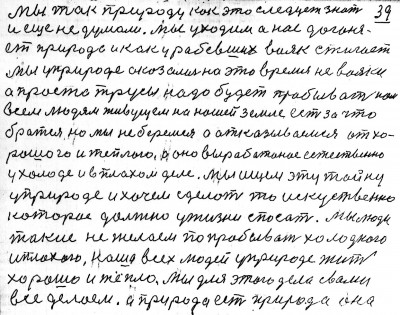 39
Мы так природу как это следует знат
и еще не думали. Мы уходим а нас догоня-
ет природа и как рабевших вояк стигает
Мы у природе оказалис на это время не вояки
а просто трусы надо будет пробыват нам
всем людям живущем на нашей земле ест за что
братся, но мы не беремся а отказываемся от хо-
рошого и теплого, а оно выработаное естественно
у холоде и в плохом деле. Мы ищем эту тайну
у природе и хочем сделат то искуственно
которое должно у жизни спасат. Мы люди
такие не желаем попробыват холодного
и плохого, наша всех людей у природе жит
хорошо и тепло. Мы для этого дела с вами
все делаем. а природа ест природа она